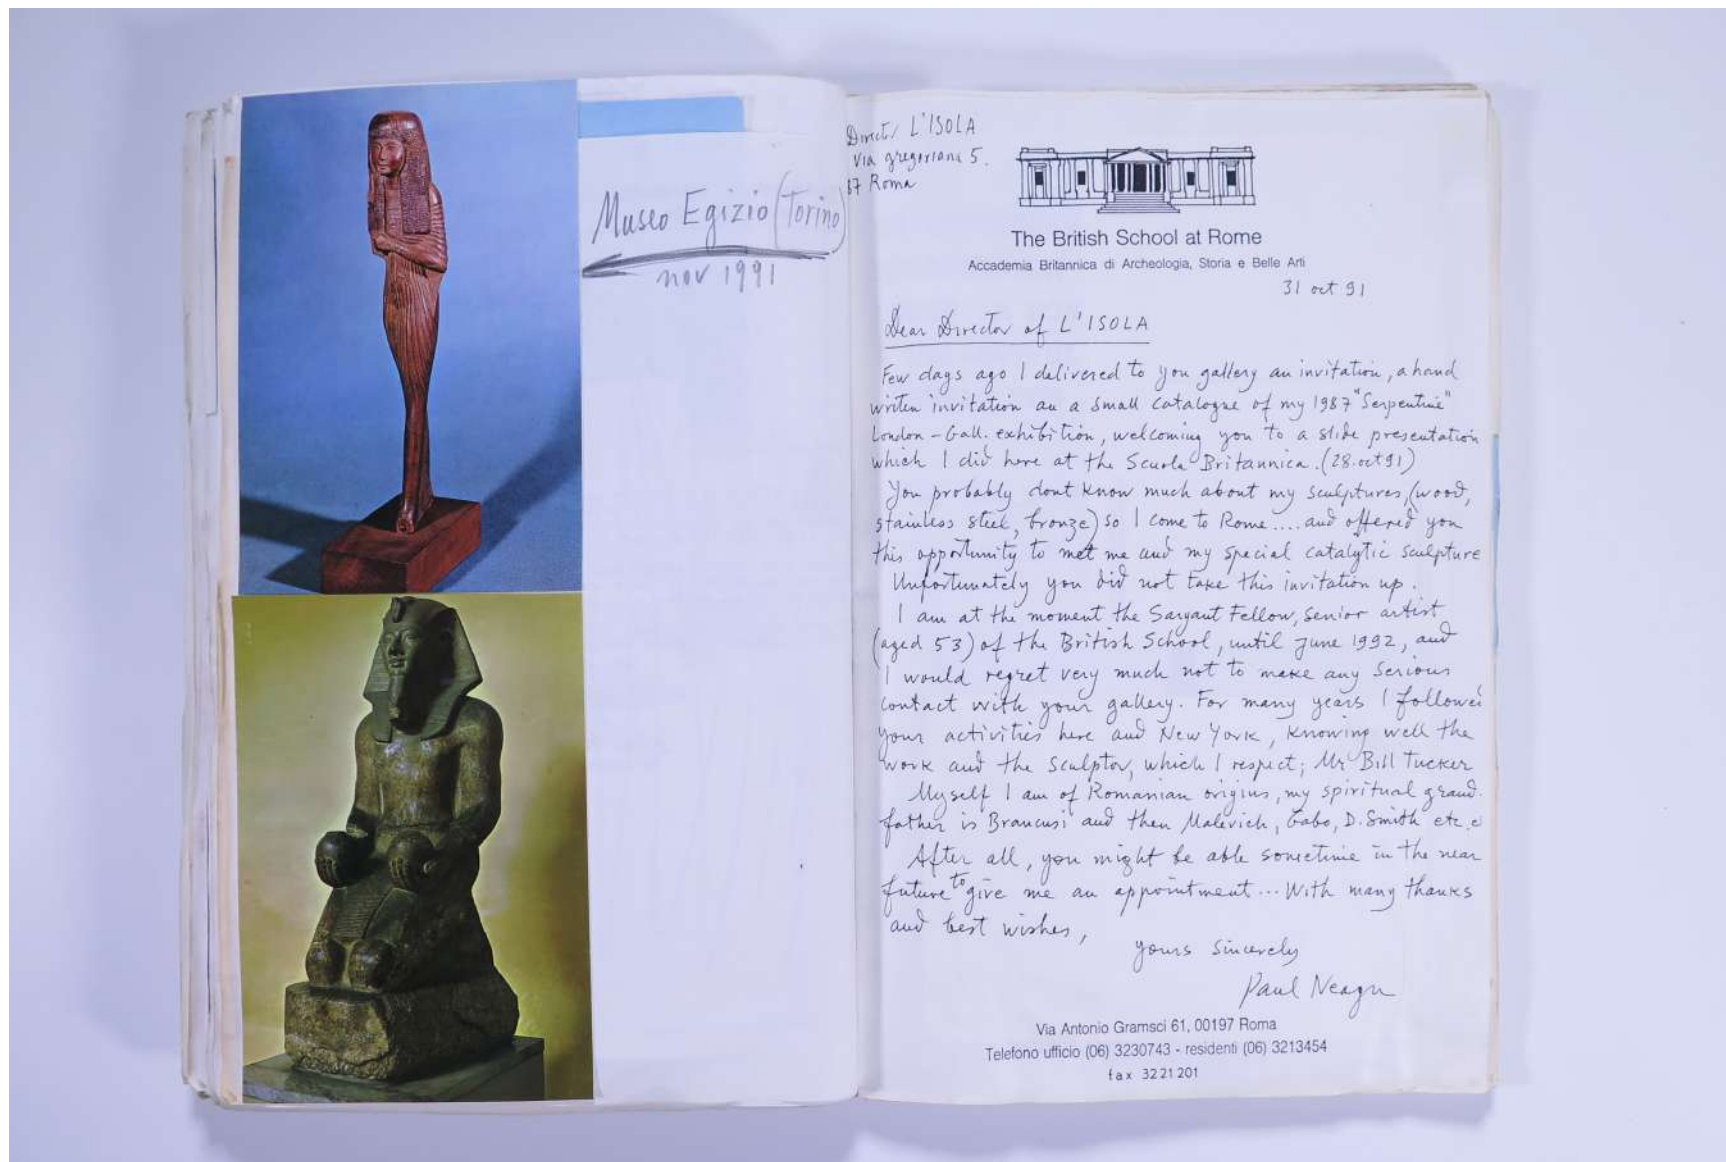 Museo Egizio (Torino)
nov 1991
Director L'ISOLA
Via gregoriana 5.
87 Roma
The British School at Rome
Accademia Britannica di Archeologia, Storia e Belle Arti
31 oct 91
Dear Director of L'ISOLA
Few days ago I delivered to you gallery an invitation, a hand
writen invitation an a small catalogue of my 1987 "Serpentine"
London - Gall. exhibition, welcoming you to a slide presentation
which I did here at the Scuola Britannica. (28.oct 91)
You probably dont know much about my sculptures, (wood,
stainless steel, bronze) so I come to Rome.... and offered you
this opportunity to met me and my special catalytic sculpture
Unfortunately you did not take this invitation up.
I am at the moment the Sargant Fellow, senior artist
(aged 53) of the British School, until June 1992, and
I would regret very much not to make any serious
contact with your gallery. For many years I followed
your activities here and New York, knowing well the
work and the sculptor, which I respect; Mr Bill Tucker
Myself I am of Romanian origins, my spiritual grand.
father is Brancusi and then Malevich, Gabo, D. Smith etc.
After all, you might be able sometime in the near
future to give me an appointment... With many thanks
and best wishes,
yours sincerely
Paul Neagu
Via Antonio Gramsci 61, 00197 Roma
Telefono ufficio (06) 3230743 - residenti (06) 3213454
fax 3221201